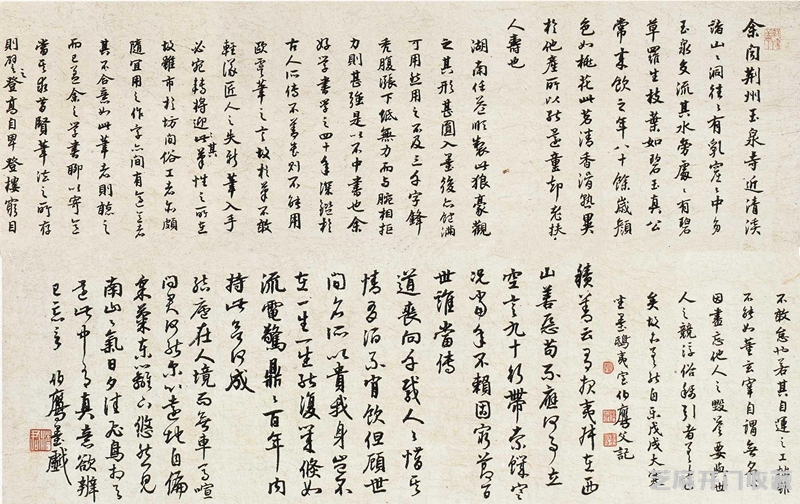 余聞荆州玉泉寺近清溪
諸山山洞往往有乳窟窟中多
玉泉交流其水旁處處有碧
草羅生枝葉如碧玉真公
常采飲之年八十餘歲顏
色如桃花此茗清香滑熟異
於他產所以能還童却老扶
人壽也
湖南任益順製此狼豪觀
之其形甚圓入墨後亦飽滿
可用然用之不及三千字鋒
禿腹漲下低無力而与腕相拒
力則甚強是以不中書也余
好學書學之四十年深鑑於
古人所傳不善書別不能用
歐虞筆之言故於筆不敢
輕詆匠人之失然筆入手
必宛轉將迎此筆性之所在
故雖市於坊間俗工者亦頗
隨宜用之作字亦間有合者
其不合意如此筆者則聽之
而已蓋余之學書聊以寄意
當先求昔賢筆法之所存
則所登高自卑登樓窮目
不敢怠也若其自運之工拙
不能如董玄宰自謂無名
因盡忘他人之毀譽要與世
人之競浮俗
矣故能自樂戊戌大寒
坐景鴟夷室伯鷹父記
積善云有報夷叔在西
山善惡苟不應何事立
空言九十行帶索饑寒
況當年不賴固窮節百
世誰當傳
道喪向千載人人惜其
情有酒不肯飲但顧世
間名所以貴我身豈不
在一生一生能復幾倏如
流電驚鼎鼎百年内
持此欲何成
結廬在人境而無車馬喧
問君何能爾心遠地自偏
采菊東籬下悠然見
南山山氣日夕佳飛鳥相与
還此中有真意欲辨
已忘言 伯鷹墨戲
芝麻开门收藏